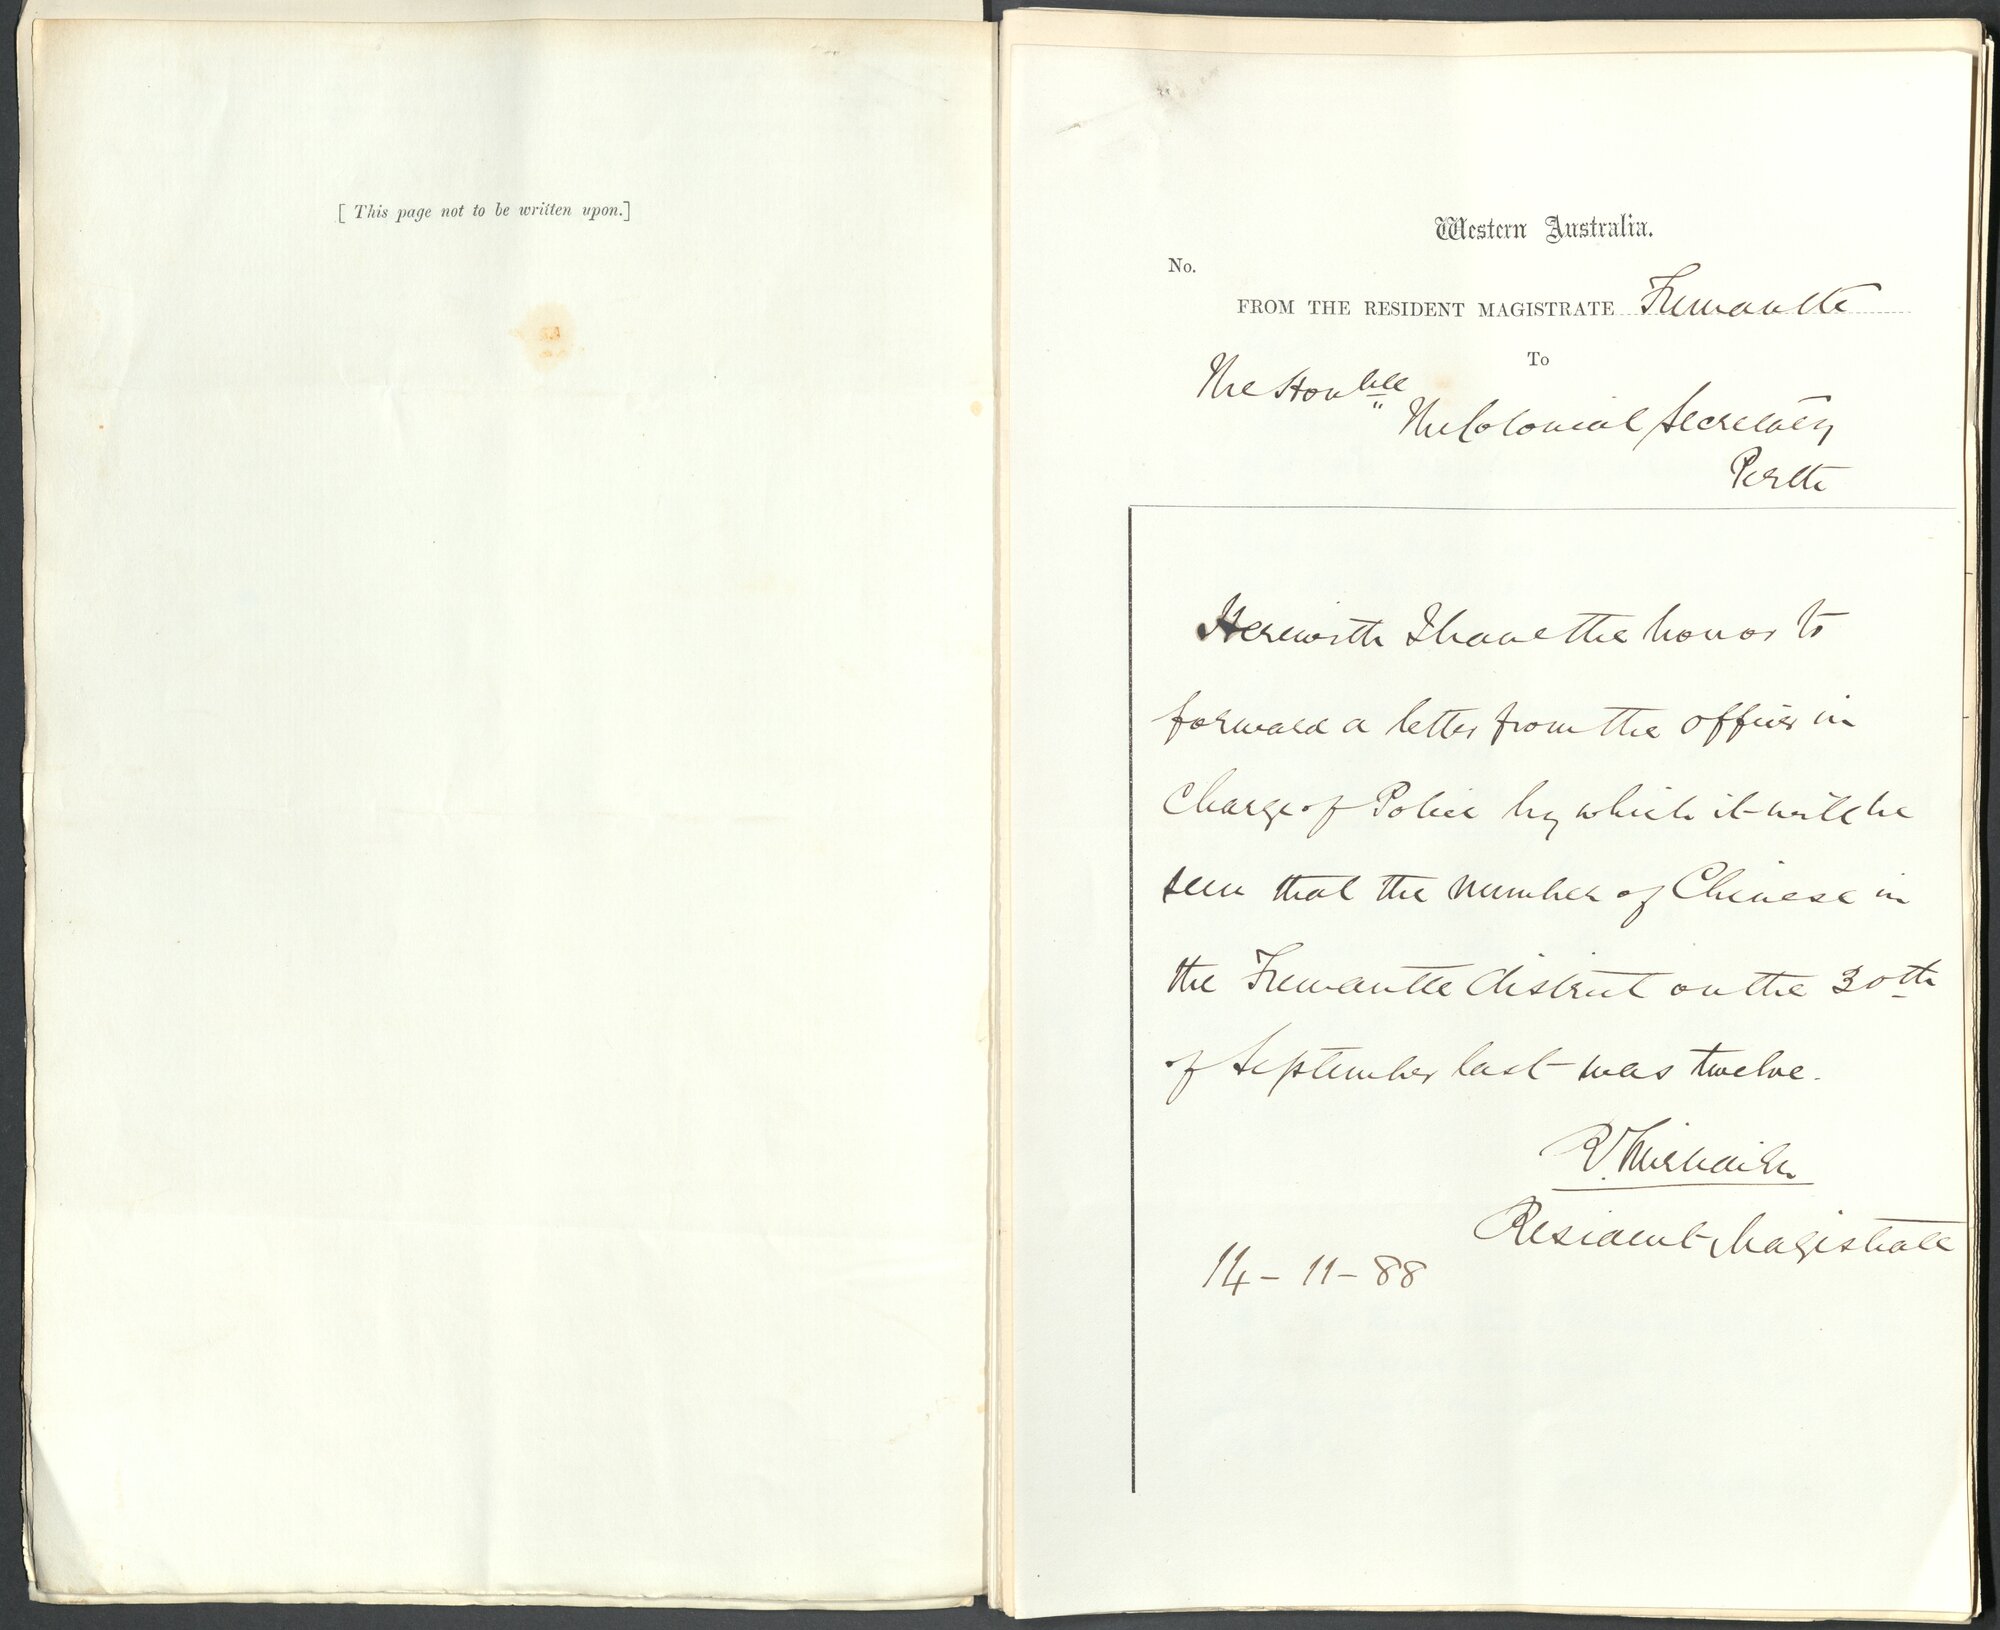 [ This page not to be written upon.]
Western Australia.
No.
FROM THE RESIDENT MAGISTRATE Fremantle
To
The Honble
The Colonial Secretary
Perth
Herewith I have the honor to
forward a letter from the officer in
Charge of Police by which it will be
seen that the number of Chinese in
the Fremantle district on the 30th
of September last was twelve.
R
Resident Magistrate
14-11-88